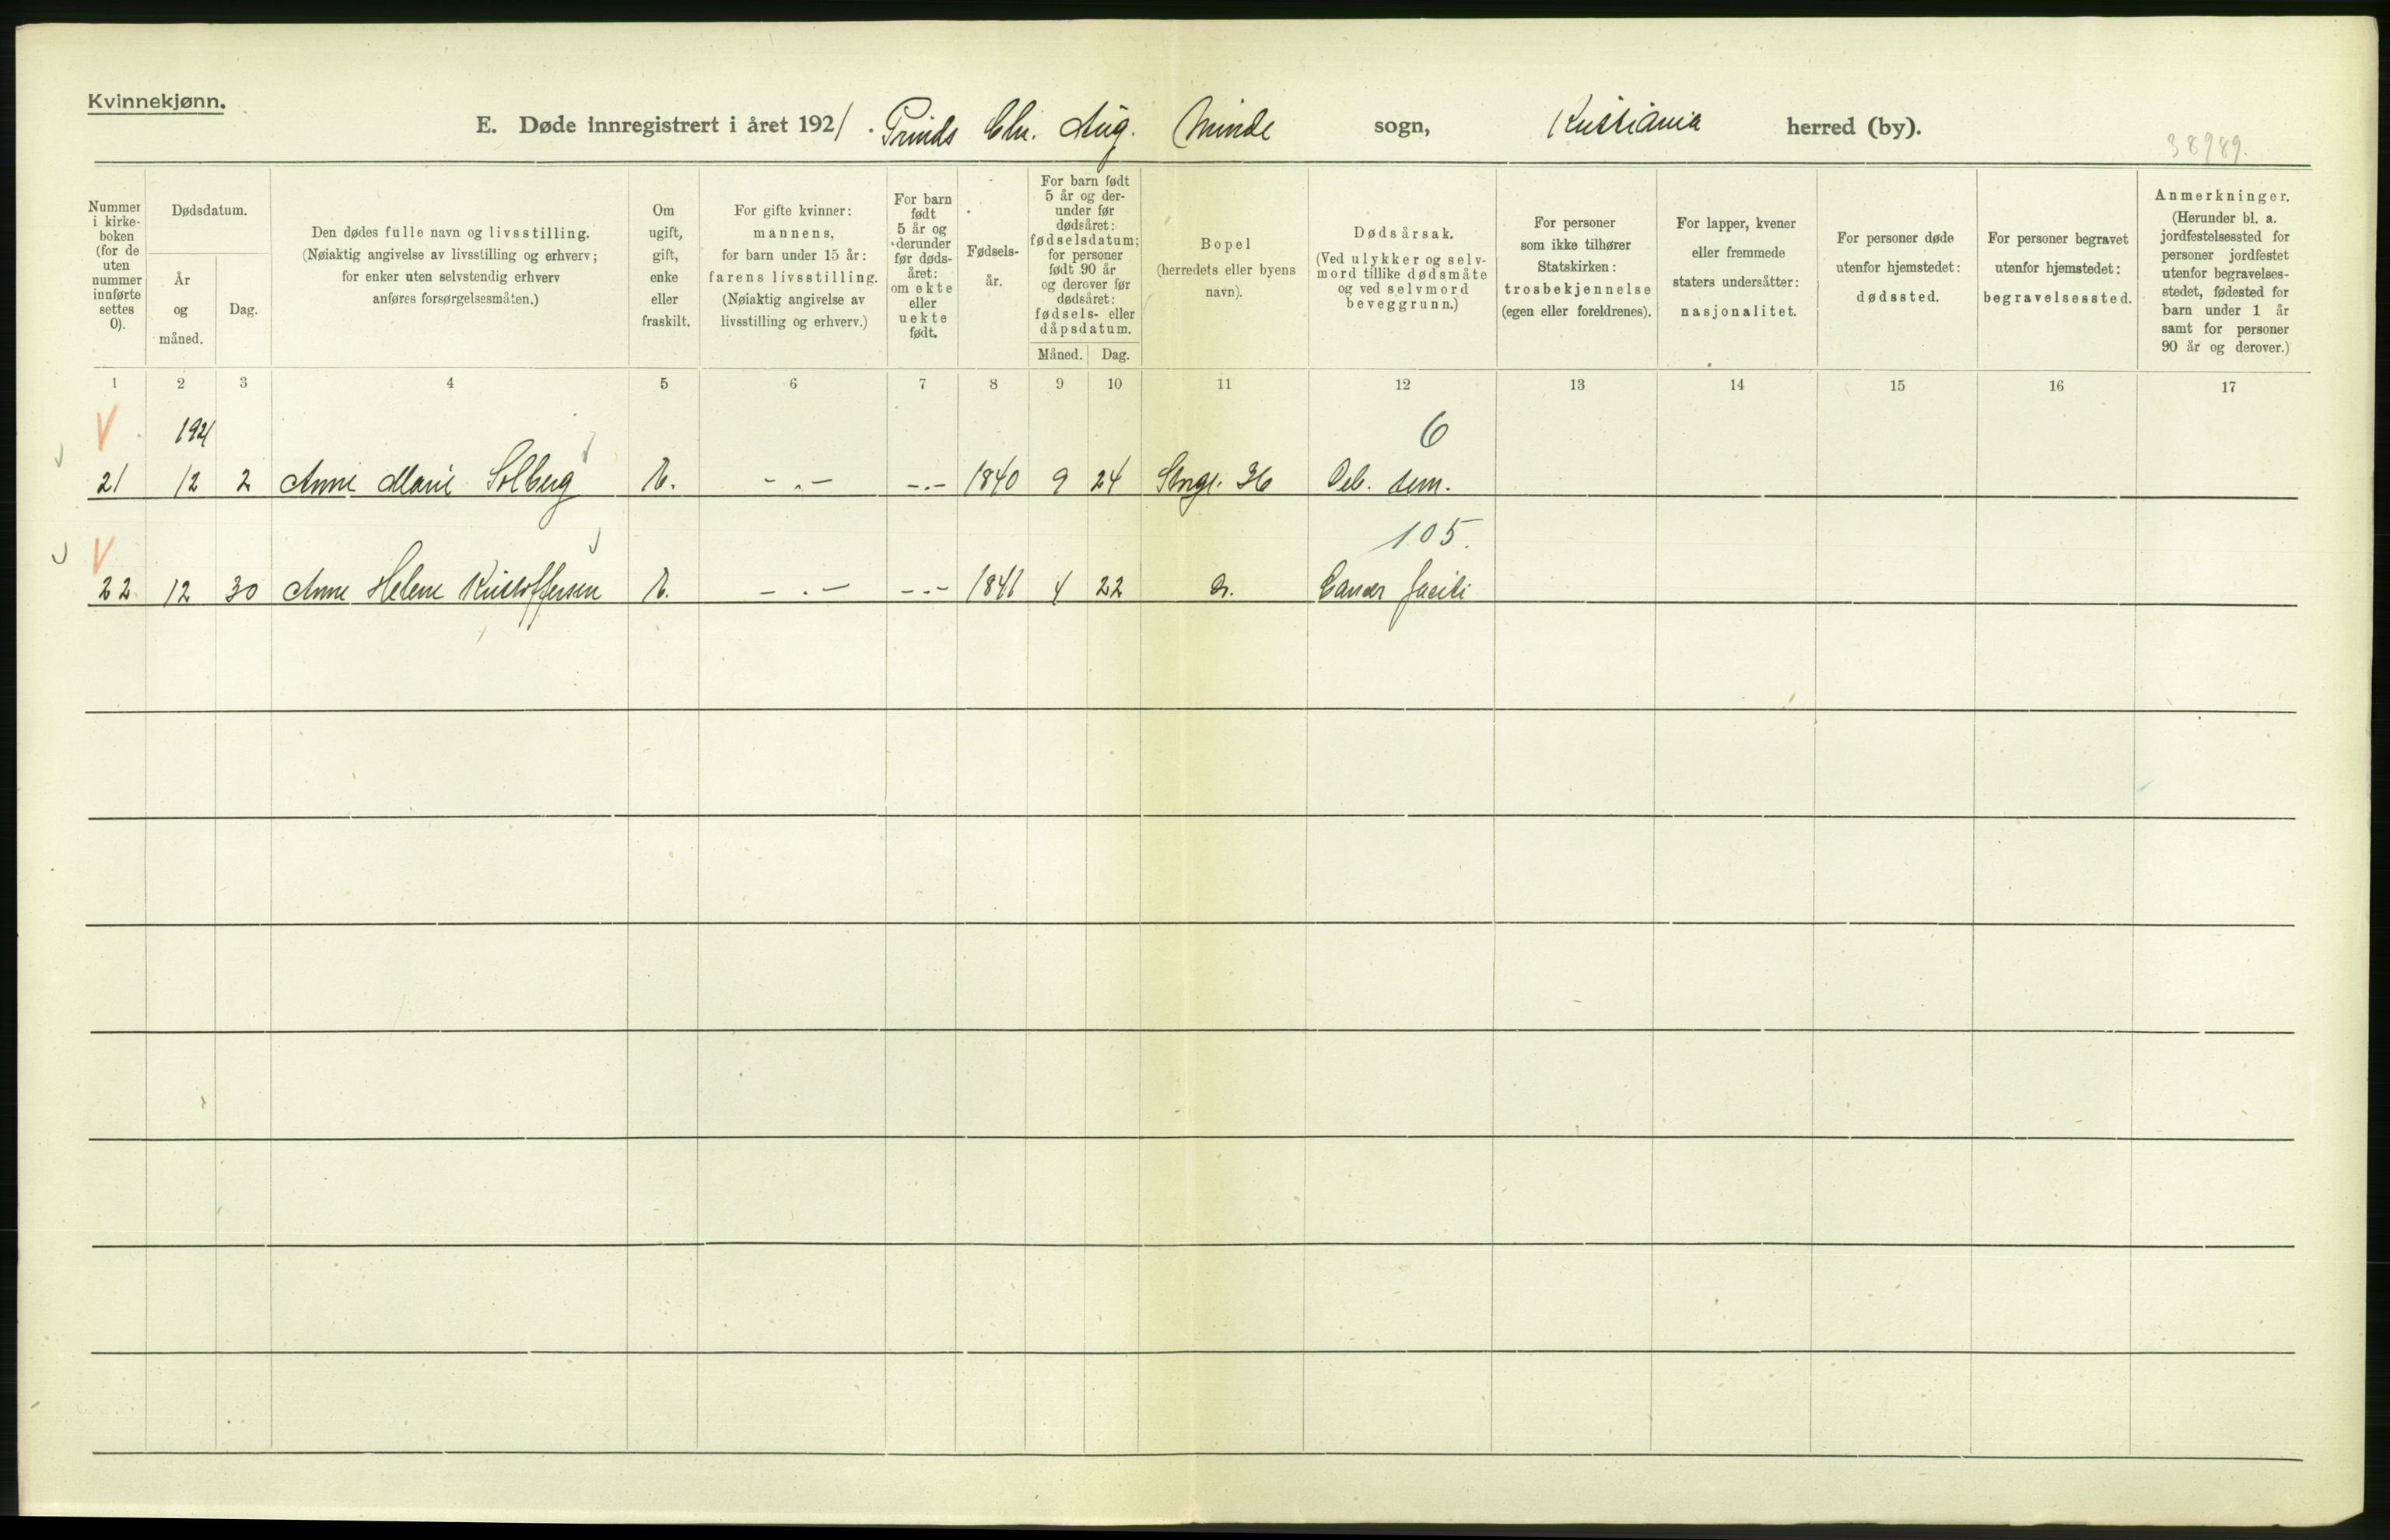 Kvinnekjønn.
E. Døde innregistrert i året 1921. Prinds Chr. Aug. Minde sogn, Kristiania herred (by).
38989.
Nummer i kirke-boken (for de uten nummer innførte settes 0).
Dødsdatum.
År og måned.
Dag.
Den dødes fulle navn og livsstilling.
(Nøiaktig angivelse av livsstilling og erhverv;
for enker uten selvstendig erhverv
anføres forsørgelsesmåten.)
Om
ugift,
gift,
enke
eller
fraskilt.
For gifte kvinner:
mannens,
for barn under 15 år:
farens livsstilling.
(Nøiaktig angivelse av
livsstilling og erhverv.)
For barn
født
5 år og
derunder
før døds-
året:
om ekte
eller
uekte
født.
Fødsels-
år.
For barn født
5 år og der-
under før
dødsåret:
fødselsdatum;
for personer
født 90 år
og derover før
dødsåret:
fødsels- eller
dåpsdatum.
Måned. Dag.
Bopel
(herredets eller byens
navn).
Dødsårsak.
(Ved ulykker og selv-
mord tillike dødsmåte
og ved selvmord
beveggrunn.)
For personer
som ikke tilhører
Statskirken:
trosbekjennelse
(egen eller foreldrenes).
For lapper, kvener
eller fremmede
staters undersåtter:
nasjonalitet.
For personer døde
utenfor hjemstedet:
dødssted.
For personer begravet
utenfor hjemstedet:
begravelsessted.
Anmerkninger.
(Herunder bl. a.
jordfestelsessted for
personer jordfestet
utenfor begravelses-
stedet, fødested for
barn under 1 år
samt for personer
90 år og derover.)
1 2 3 4 5 6 7 8 9 10 11 12 13 14 15 16 17
V 1921 6
21 12 2 Anne Marie Solberg - . - - . - 1840 9 24 Stngt. 36 Deb. sen.
V 105.
22 12 30 Anne Helene Kristoffersen - . - - . - 1841 4 22 Cancer faciei